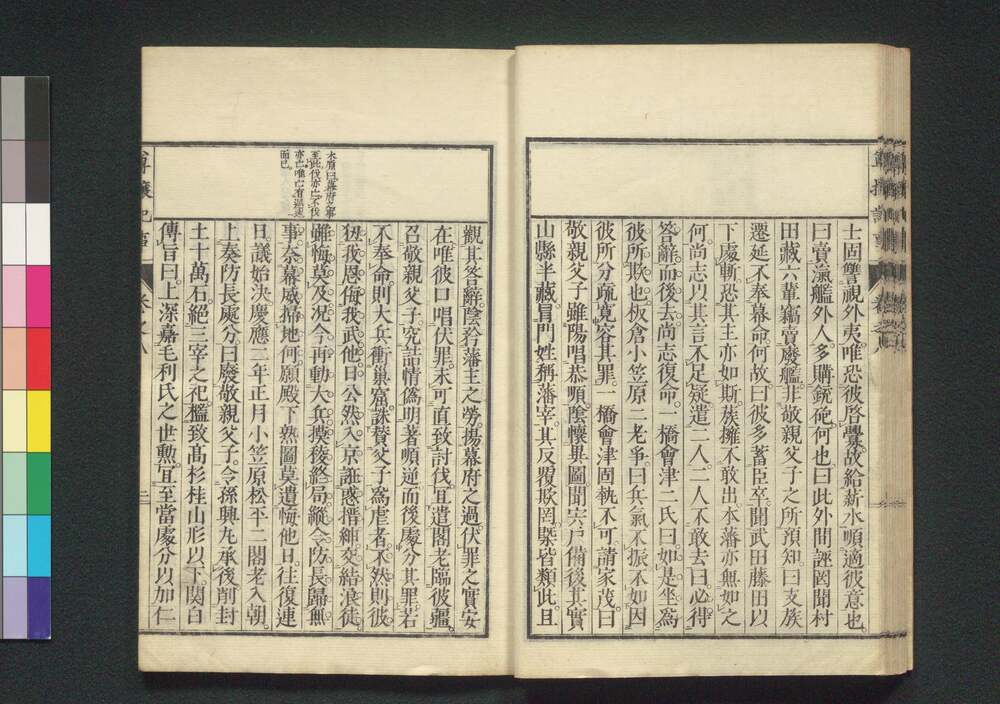 士固讐視外夷。唯恐彼啓釁。故給薪水順適彼意也。
曰賣瀛艦外人。多購銃砲。何也。曰此外間誣罔。聞村
田藏六輩竊賣廢艦。非敬親父子之所預知。曰支族
遷延不奉幕命何故。曰彼多蓄臣卒。聞武田藤田以
下處斬。恐其主亦如斯族。擁不敢出。本藩亦無如之
何。尚志以其言不足疑。遣二人。二人不敢去。曰必得
答辭而後去。尚志復命。一橋會津二氏曰。如是坐爲
彼所欺也。板倉小笠原二老爭曰。兵氣不振。不如因
彼所分疏寬容其罪。一橋會津固執不可。請家茂。曰
敬親父子雖陽唱恭順。陰懷異圖。聞宍戶備後其實
山縣半藏。冒門姓稱藩宰。其反覆欺罔。槩皆類此。且
觀其答辭。陰矜藩王之勞。揚幕府之過。伏罪之實安
在。唯彼口唱伏罪。未可直致討伐。宜遣閣老臨彼疆。
召敬親父子。究詰情僞。明著順逆。而後處分其罪。若
不奉命。則大兵衝巢窟。誅贊父子爲虐者。不然則彼
狃我恩。侮我武。他日公然入京。誑惑搢紳。交結浪徒。
雖悔莫及。況今再動大兵。揆後終局。縱令防長歸無
事。奈幕威掃地何。願殿下熟圖。莫遺悔他日。往復連
日。議始決。慶應二年正月。小笠原松平二閣老入朝。
上奏防長處分曰。廢敬親父子。令孫興九承後。削封
土十萬石。絕三宰之祀。檻致高杉桂山形以下。關白
傳旨曰。上深嘉毛利氏之世勳。宜至當處分以加仁
木原曰。幕府之事
至此。伐亦亡。不伐
亦亡。唯亡有遲速
而已。
尊攘紀事
卷之八
二